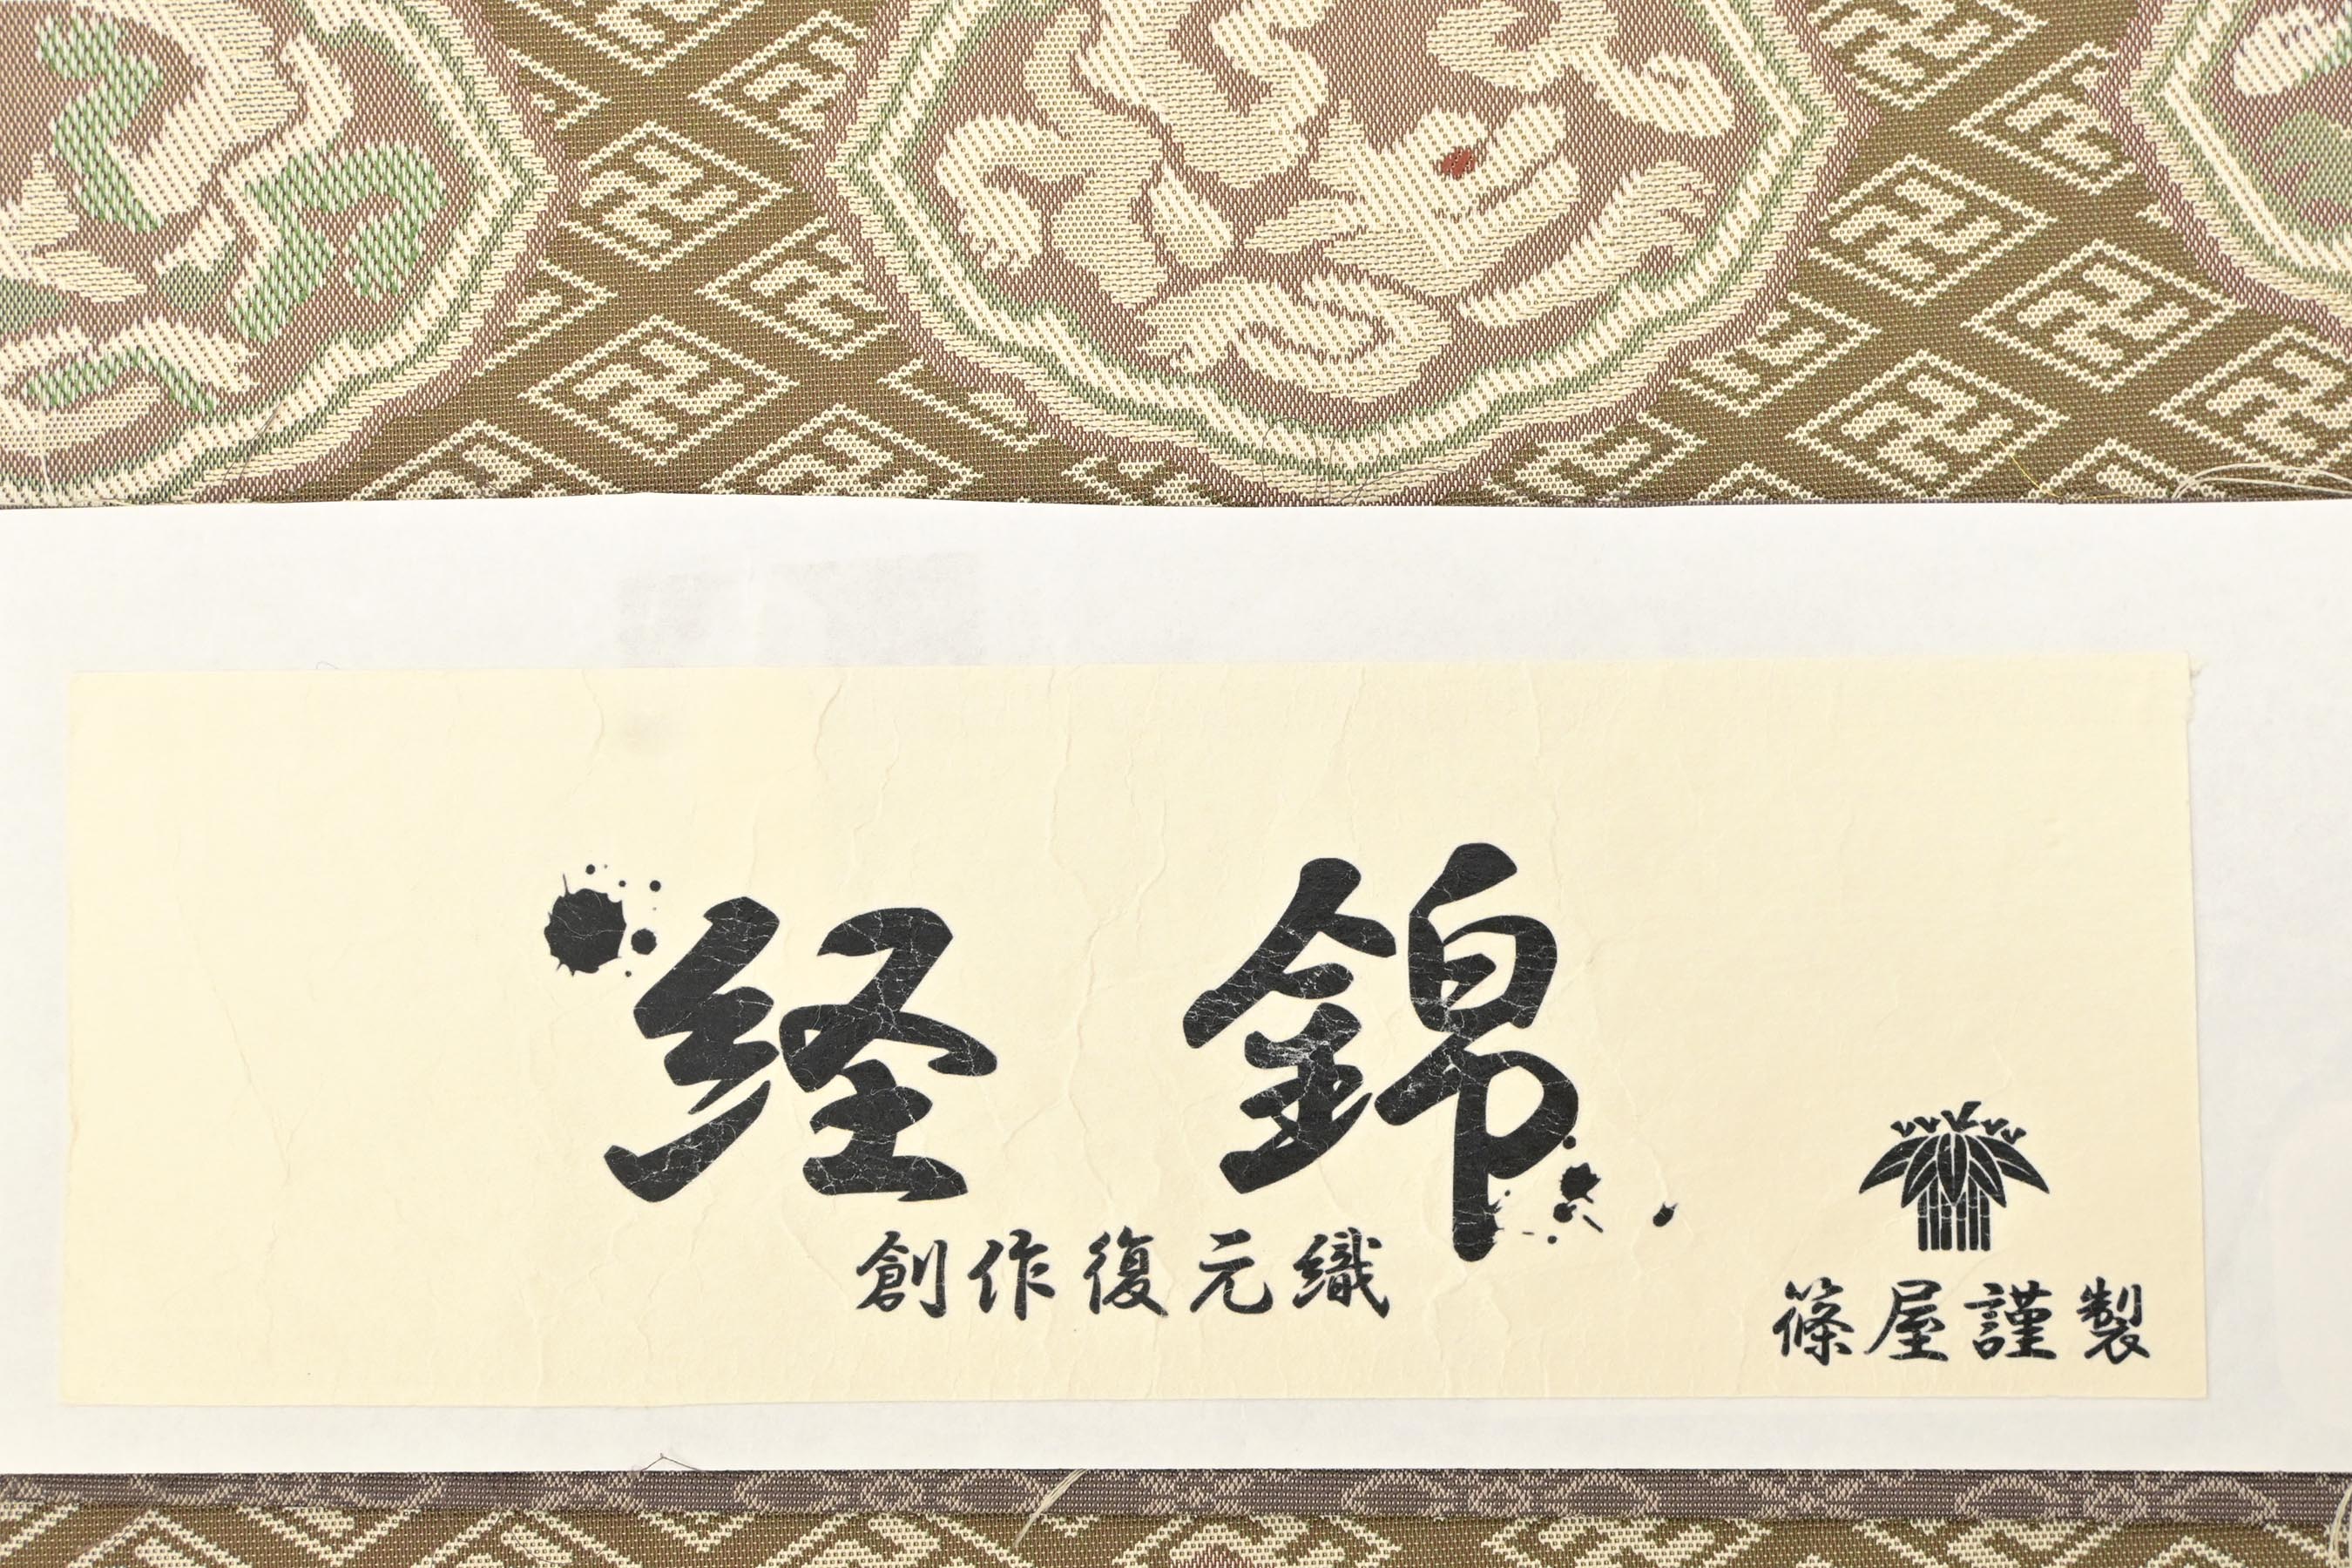 経錦
創作復元織
篠屋謹製